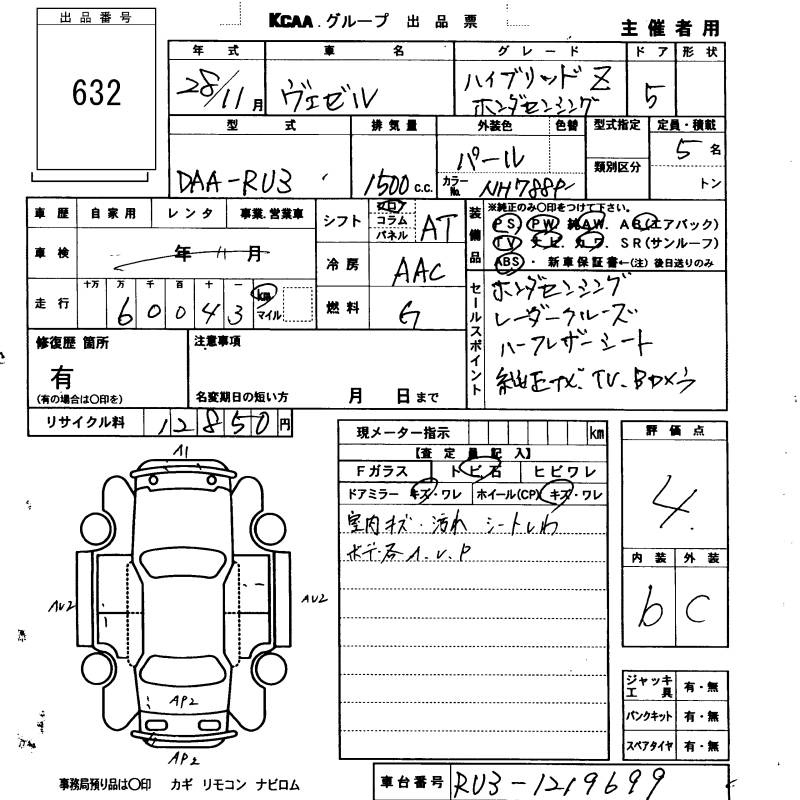 出品番号
632
KCAA グループ 出品票
主催者用
年式 車名 グレード ドア 形状
28/11月 ヴェゼル ハイブリッド Z 5
ホンダセンシング
型式 排気量 外装色 色替 型式指定 定員・積載
DAA-RU3 1500 c.c. パール 5名
類別区分
カラーNo. NH788P トン
車歴 自家用 レンタ 事業、営業車
シフト フロ コラム パネル AT
車検 年 11月
冷房 AAC
走行 十万 万 千 百 十 一
6 0 0 4 3 km マイル
燃料 G
装備品
※純正のみ〇印をつけて下さい。
PS. PW. 純AW. AB(エアバック)
TV ナビ. カワ. SR(サンルーフ)
ABS・ 新車保証書←(注)後日送りのみ
セールスポイント
ホンダセンシング
レーダークルーズ
ハーフレザーシート
純正ナビ、TV、Bカメラ
修復歴 箇所
有
(有の場合は〇印を)
注意事項
名変期日の短い方 月 日まで
リサイクル料 12850円
現メーター指示 km
【査定員記入】
Fガラス トビ石 ヒビワレ
ドアミラー キズ・ワレ ホイール(CP) キズ・ワレ
室内キズ・汚れ シートしわ
ボデー各A.U.P
評価点
4
内装 外装
b C
A1
AU2
AU2
AP2
AP2
ジャッキ工具 有・無
パンクキット 有・無
スペアタイヤ 有・無
事務局預り品は〇印 カギ リモコン ナビロム
車台番号 RU3-1219699